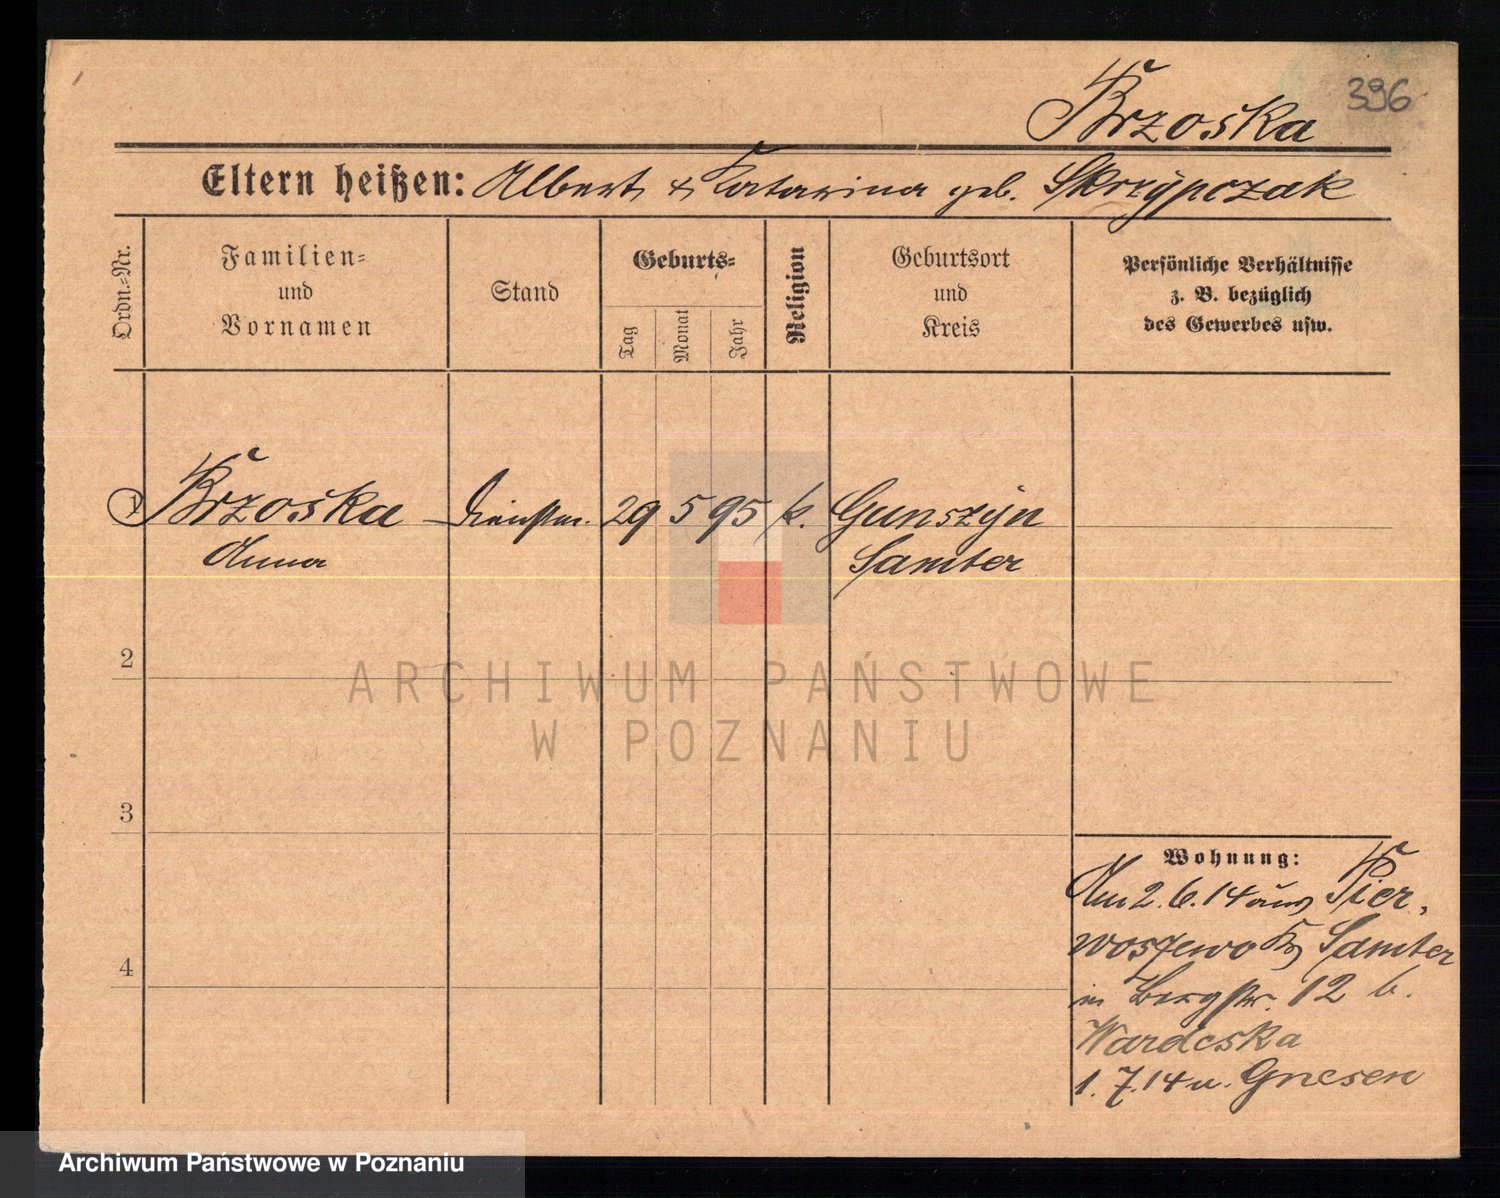 396
Brzoska
Eltern heißen: Albert & Katarina geb. Skrzypczak
Ordn.-Nr.
Familien-
und
Vornamen
Stand
Geburts-
Tag
Monat
Jahr
Religion
Geburtsort
und
Kreis
Persönliche Verhältnisse
z. B. bezüglich
des Gewerbes usw.
1 Brzoska Dienstm. 29 5 95 k. Gunszyn
Anna Samter
2
3
4
ARCHIWUM PAŃSTWOWE
W POZNANIU
Wohnung:
Am 2. 6. 14 aus Pier-
woszewo Kr Samter
in Bergstr. 12 b.
Wardeska
1. 7. 14 n. Gnesen
Archiwum Państwowe w Poznaniu